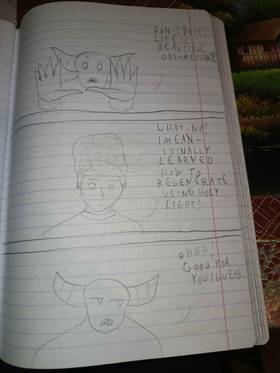 DON'T DO IT!
LIFE IS
BEAUTIFUL
OR SOMETHING!
WHAT. NO!
I MEAN-
I FINALLY
LEARNED
HOW TO
REGENERATE
USING HOLY
LIGHT!
OHHH!
GOOD FOR
YOU I GUESS.